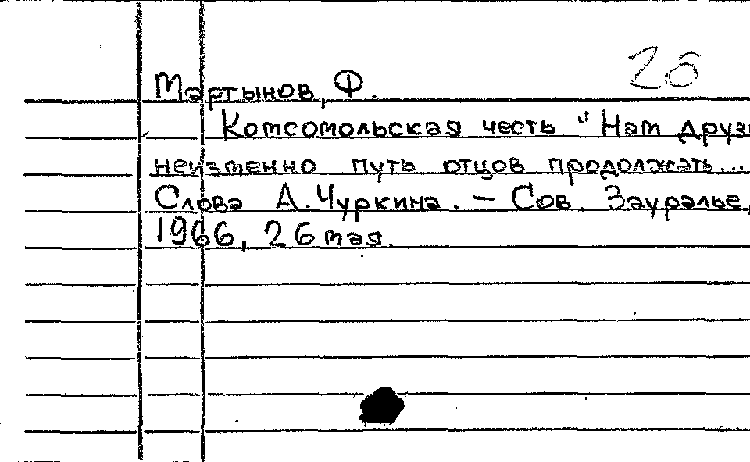 26
Мартынов, Ф.
Комсомольская честь "Нам друзь
неизменно путь отцов продолжать...
Слова А. Чуркина. — Сов. Зауралье,
1966, 26 мая.